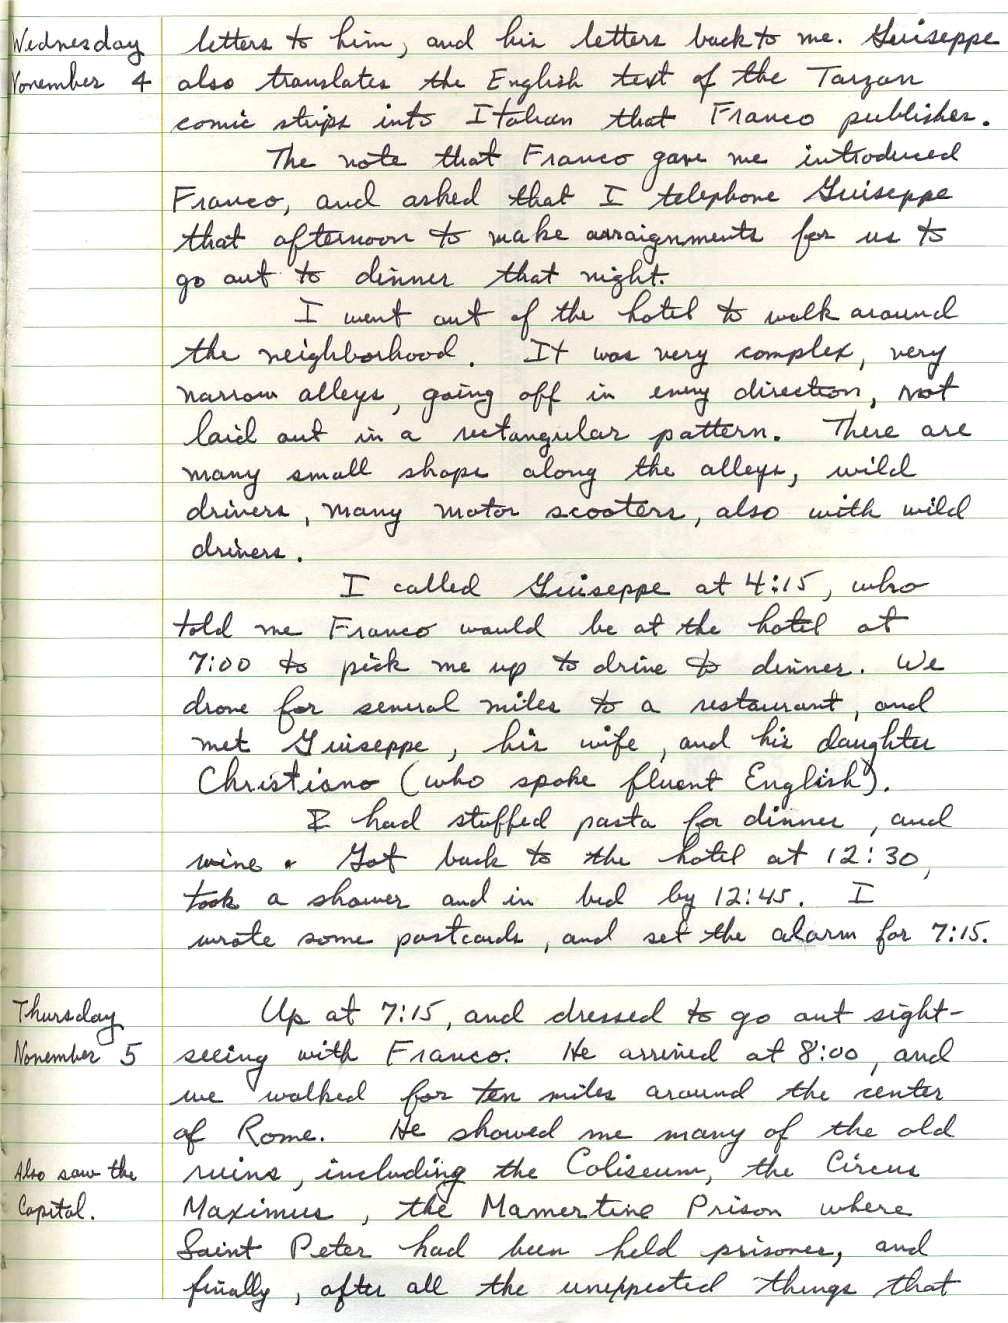 Wednesday
November 4
letters to him, and his letters back to me. Guiseppe
also translates the English text of the Tarzan
comic strips into Italian that Franco publishes.
The note that Franco gave me introduced
Franco, and asked that I telephone Guiseppe
that afternoon to make arraignments for us to
go out to dinner that night.
I went out of the hotel to walk around
the neighborhood. It was very complex, very
narrow alleys, going off in every direction, not
laid out in a rectangular pattern. There are
many small shops along the alleys, wild
drivers, many motor scooters, also with wild
drivers.
I called Guiseppe at 4:15, who
told me Franco would be at the hotel at
7:00 to pick me up to drive to dinner. We
drove for several miles to a restaurant, and
met Guiseppe, his wife, and his daughter
Christiano (who spoke fluent English).
I had stuffed pasta for dinner, and
wine. Got back to the hotel at 12:30,
took a shower and in bed by 12:45. I
wrote some postcards, and set the alarm for 7:15.
Thursday
November 5
Up at 7:15, and dressed to go out sight-
seeing with Franco. He arrived at 8:00, and
we walked for ten miles around the center
of Rome. He showed me many of the old
Also saw the
Capital.
ruins, including the Coliseum, the Circus
Maximus, the Mamertine Prison where
Saint Peter had been held prisoner, and
finally, after all the unexpected things that